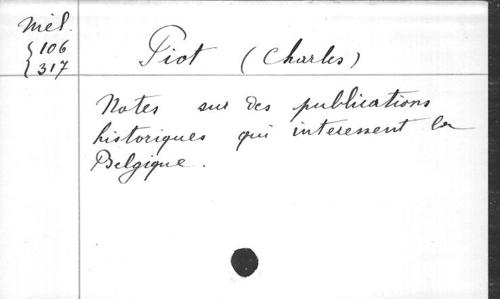 Mél.
106
317
Piot (Charles)
Notes sur des publications
historiques qui interessent la
Belgique.